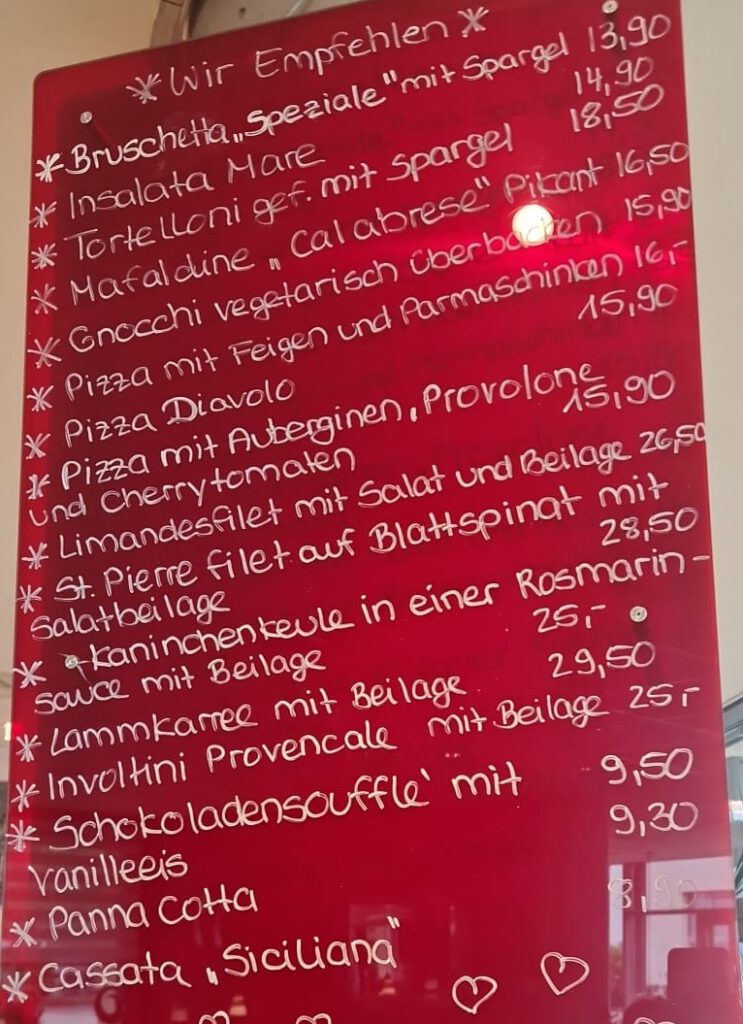 * Wir Empfehlen *
* Bruschetta „Speziale" mit Spargel 13,90
* Insalata Mare 14,90
* Tortelloni gef. mit Spargel 18,50
* Mafaldine „Calabrese" Pikant 16,50
* Gnocchi vegetarisch überbacken 15,90
* Pizza mit Feigen und Parmaschinken 16,-
* Pizza Diavolo 15,90
* Pizza mit Auberginen, Provolone
und Cherrytomaten 15,90
* Limandesfilet mit Salat und Beilage 26,50
* St. Pierre filet auf Blattspinat mit
Salatbeilage 28,50
* Kaninchenkeule in einer Rosmarin-
sauce mit Beilage 25,-
* Lammkarree mit Beilage 29,50
* Involtini Provencale mit Beilage 25,-
* Schokoladensoufflé mit
Vanilleeis 9,50
* Panna Cotta 9,30
* Cassata „Siciliana" 8,90